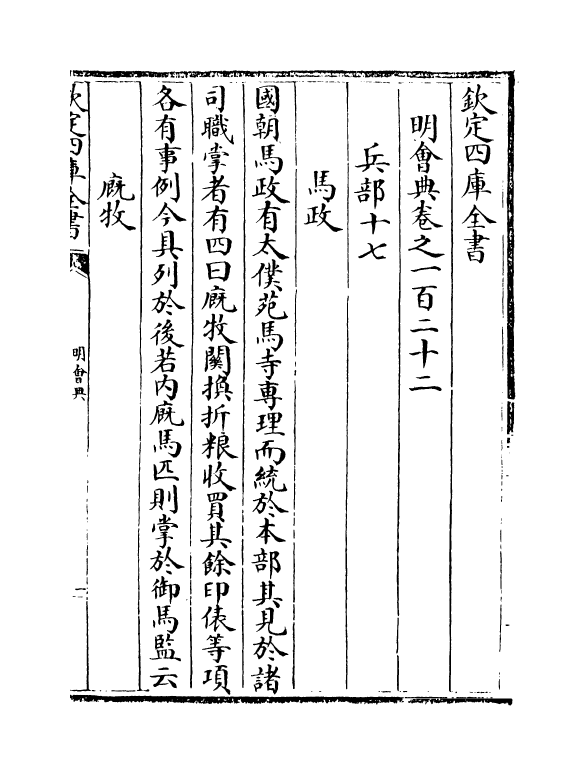 欽定四庫全書
明會典卷之一百二十二
兵部十七
馬政
國朝馬政有太僕苑馬寺專理而統於本部其見於諸
司職掌者有四曰廐牧關換折粮收買其餘印俵等項
各有事例今具列於後若内廐馬匹則掌於御馬監云
廐牧
欽定四庫全書
明會典
一